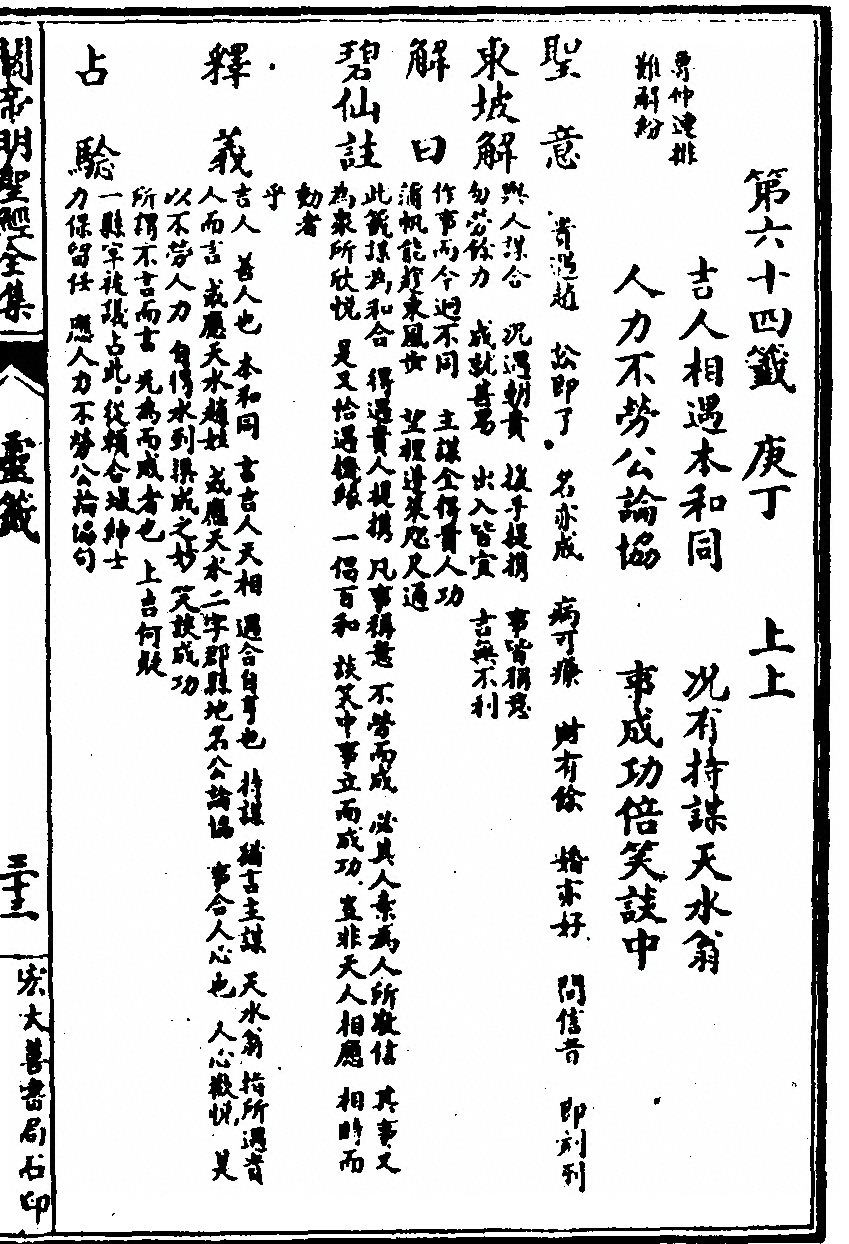 第六十四籤　庚丁　上上
魯仲連排
難解紛
吉人相遇本和同　况有持謀天水翁
人力不勞公論協　事成功倍笑談中
聖意　貴遇趙　訟即了　名亦成　病可療　財有餘　婚亦好　問信音　即刻到
東坡解　與人謀合　況遇朝貴　援手提携　事皆稱意
勿勞餘力　成就甚易　出入皆宜　吉無不利
解曰　作事而今迥不同　主謀全得貴人功
蒲帆能趁東風步　望裡蓬萊咫尺通
碧仙註　此籤謀為和合　得遇貴人提携　凡事稱意　不勞而成　必其人素為人所敬信　其事又
為衆所欣悦　是又恰遇機緣　一倡百和　談笑中事立而成功　豈非天人相應　相時而
動者
乎
釋義　吉人　善人也　本和同　言吉人天相　遇合自亨也　持謀　猶言主謀　天水翁　指所遇貴
人而言　或應天水趙姓　或應天水二字郡縣地名　公論協　事合人心也　人心歡悦　是
以不勞人力　自得水到渠成之妙　笑談成功
所謂不言而喜　无為而成者也　上吉何疑
占驗　一縣宰被議占此　從賴合城紳士
力保留任　應人力不勞公論協句
關帝明聖經全集　靈籤　三十三　宏大善書局石印